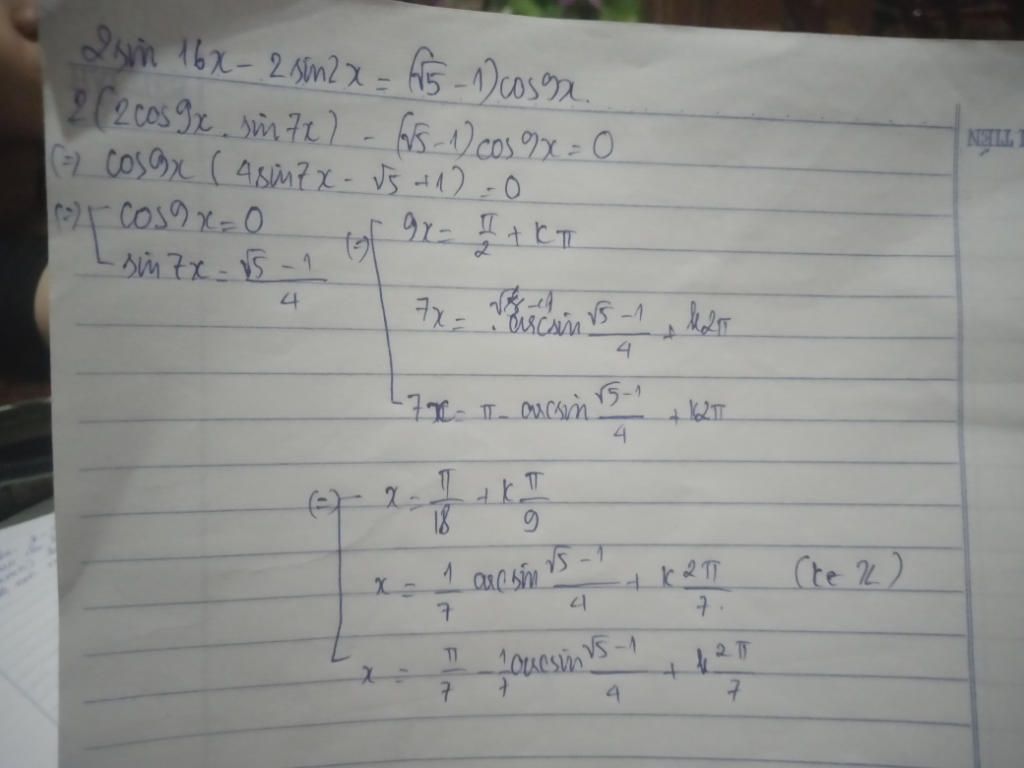 2sin 16x - 2sin2x = (√5 - 1)cos9x.
2(2cos9x . sin7x) - (√5-1)cos9x = 0
(=) cos9x (4sin7x - √5 +1) = 0
(=) [ cos9x = 0 (=) [ 9x = π/2 + kπ
sin7x = (√5 - 1)/4
7x = arcsin (√5 - 1)/4 + k2π
7x = π - arcsin (√5-1)/4 + k2π
(=) [ x = π/18 + k π/9
x = 1/7 arcsin (√5 - 1)/4 + k 2π/7. (k∈ℤ)
x = π/7 - 1/7 arcsin (√5-1)/4 + k 2π/7
TIẾN